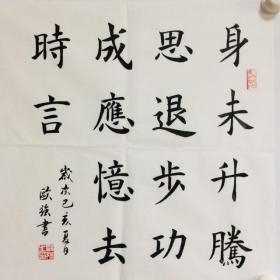 身未升騰
思退步功
成應憶去
時言
歲次己亥夏日
歐強書